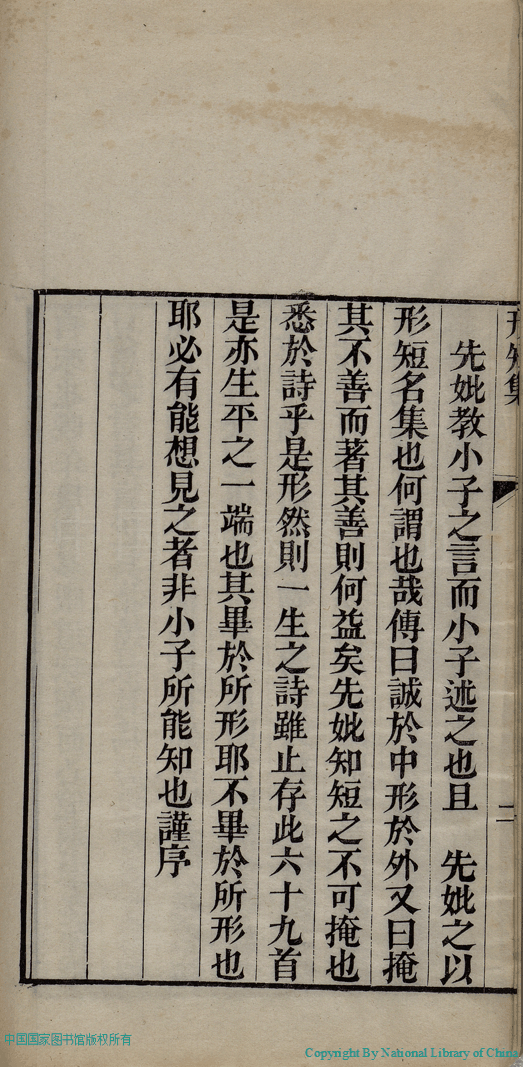 形短集
二
先妣教小子之言而小子述之也且　先妣之以
形短名集也何謂也哉傳曰誠於中形於外又曰掩
其不善而著其善則何益矣先妣知短之不可掩也
悉於詩乎是形然則一生之詩雖止存此六十九首
是亦生平之一端也其畢於所形耶不畢於所形也
耶必有能想見之者非小子所能知也謹序
中国国家图书馆版权所有
Copyright By National Library of China